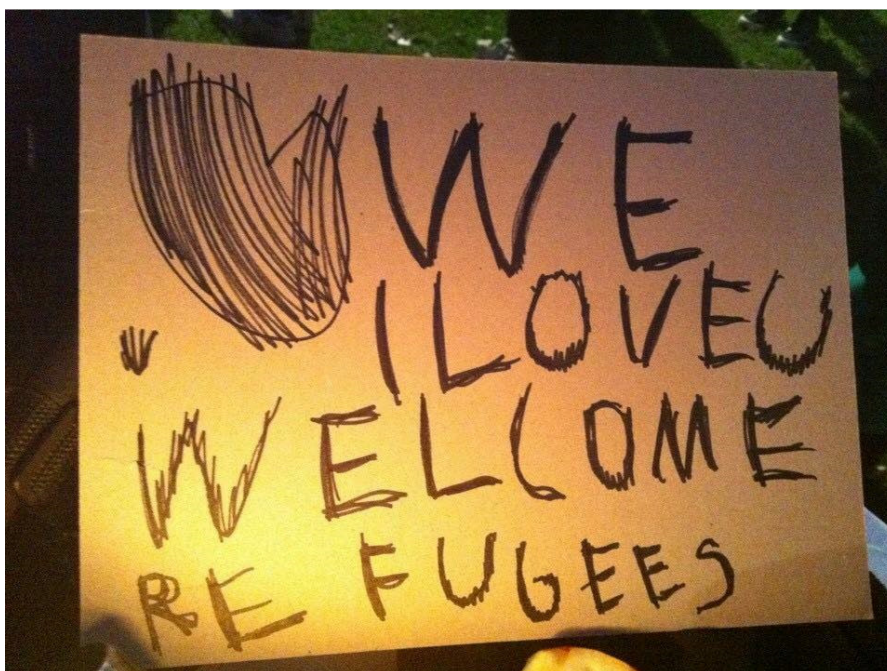 WE
I LOVE U
WELCOME
REFUGEES